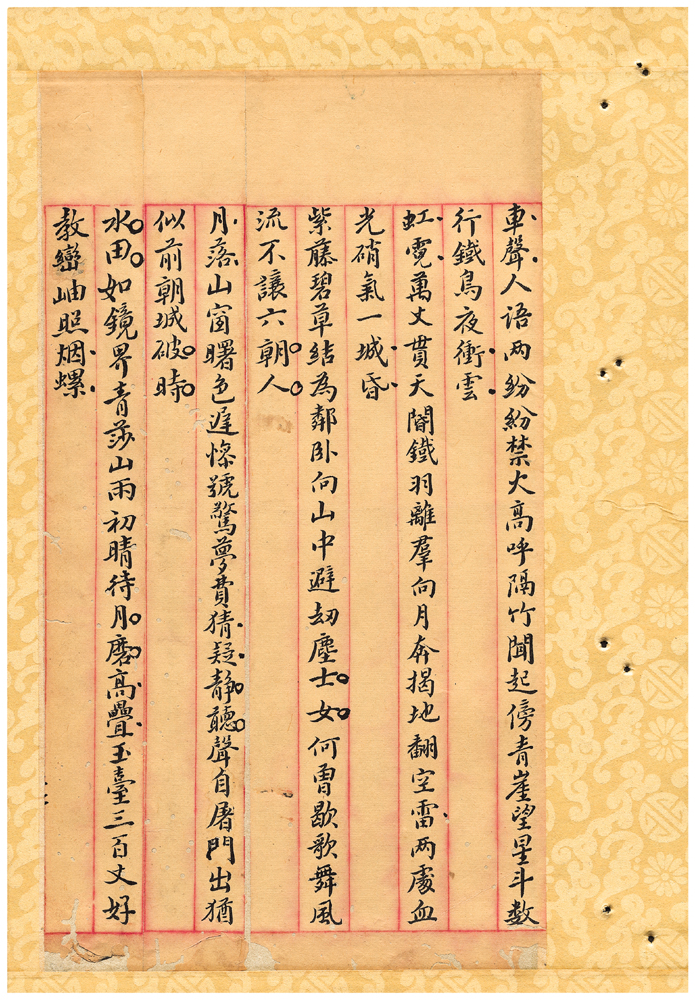 車聲人語兩紛紛禁火高呼隔竹聞起傍青崖望星斗數
行鐵鳥夜衝雲
虹霓萬丈貫天閽鐵羽離羣向月奔揭地翻空雷兩處血
光硝氣一城昏
紫藤碧草結為鄰卧向山中避劫塵士女何曾歇歌舞風
流不讓六朝人
月落山窗曙色遲慘號驚夢費猜疑靜聽聲自屠門出猶
似前朝城破時
水田如鏡界青莎山雨初晴待月磨高疊玉臺三百丈好
教巒岫照烟螺